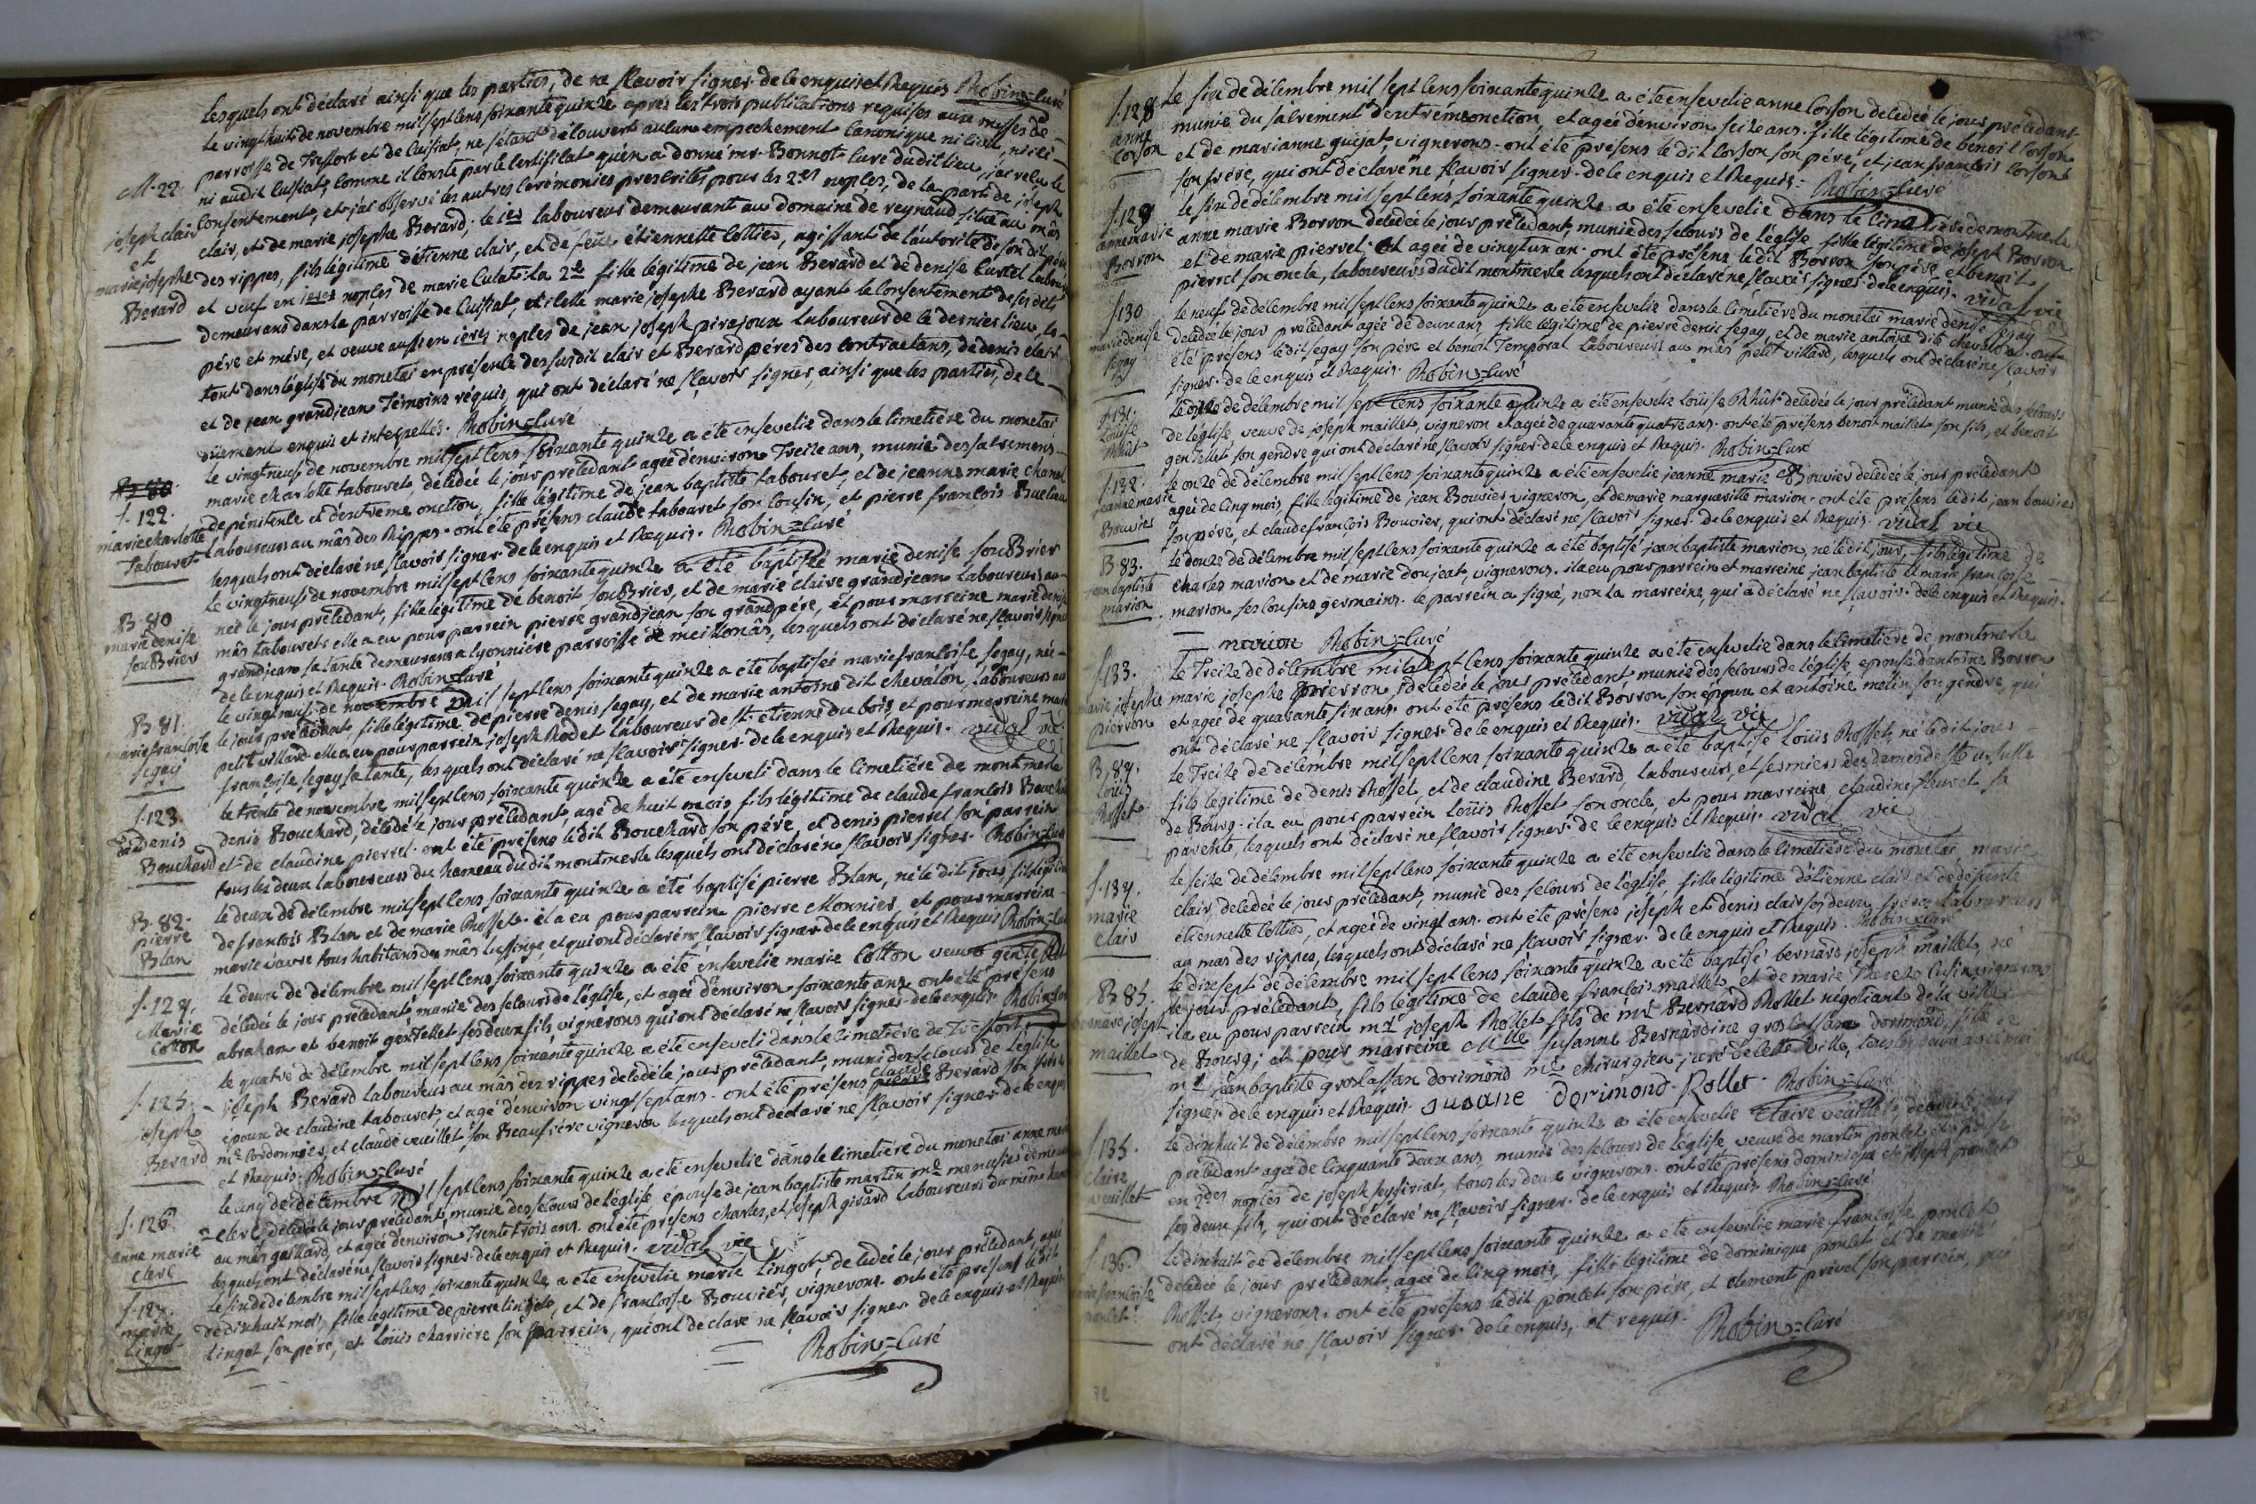 lesquels ont déclaré ainsi que les parties, de ne sçavoir signer de ce enquis et Requis Robin=curé
le vingthuit de novembre mil sept cens soixante quinze apres les trois publications requises aux messes de
parroisse de Treffort et de Cuisiat, ne s'étant découvert aucun empechement canonique ni civil, ni ici
ni audit Cuisiat, comme il conste par le certificat qu'en a donné mr. Bonnot curé dudit lieu, j'ai relu le
M. 22.
joseph clair
et
marie josephe
Berard
consentement, et j'ai observé les autres cérémonies prescrites pour les 2es noples, de la part de joseph
clair, et de marie josephe Berard; le 1er laboureur demeurant au domaine de reynaud situé au mâs
des rippes, fils légitime d'étienne clair, et de feüe étiennette Collied, agissant de l'autorité de son dit père
et veuf en 1eres noples de marie Culat: la 2e fille légitime de jean Berard et de denise Curtel
demeurans dans la parroisse de Cuisiat, et icelle marie josephe Berard ayant le consentement de ses dits
père et mère, et veuve aussi en 1eres noples de jean joseph pirajoux laboureur de ce dernier lieu, le
tout dans l'église du monetai en présence des susdit clair et Berard péres des contractans, de denis clair
et de jean grandjean Témoins réquis, qui ont déclaré ne sçavoir signer, ainsi que les parties, de ce
düement enquis et interpellés. Robin=curé
S. 122.
marie charlotte
Tabouret
le vingtneuf de novembre mil sept cens soixante quinze a été ensevelie dans le cimetière du monetai
marie charlotte tabouret, décédée le jour précédant agée d'environ Treize ans, munie des sacremens
de pénitence et d'extrême onction, fille légitime de jean baptiste tabouret, et de jeanne marie chanel
laboureurs au mâs des Rippes. ont été présens claude tabouret son cousin, et pierre françois
lesquels ont déclaré ne sçavoir signer de ce enquis et Requis. Robin=curé
B. 80
marie denise
souBrier
le vingtneuf de novembre mil sept cens soixante quinze a été baptisée marie denise souBrier
née le jour précédant, fille légitime de benoit souBrier, et de marie claire grandjean laboureurs au
mâs tabouret: elle a eu pour parrein pierre grandjean son grandpére, et pour marreine marie denise
grandjean sa tante demeurans a lyonniére parroisse de meillonâs, lesquels ont déclaré ne sçavoir signer
de ce enquis et Requis. Robin=curé
B. 81.
marie françoise
segay
le vingtneuf de novembre mil sept cens soixante quinze a été baptisée marie françoise segay, née
le jour précédant, fille légitime de pierre denis segay, et de marie antoine dit chevalon, laboureurs au
petit villard. elle a eu pour parrein joseph Rodet laboureur de st. étienne du bois et pour marreine marie
françoise segay sa tante, lesquels ont déclaré ne sçavoir signer. de ce enquis et Requis. vidal vic
S. 123.
denis
Bouchard
le trente de novembre mil sept cens soixante quinze a été enseveli dans le cimetiére de montmerle
denis Bouchard, décédé le jour précédant, agé de huit mois fils légitime de claude françois Bouchard
et de claudine pierrel. ont été présens le dit Bouchard son pére, et denis pierrel son parrein
tous les deux laboureurs du hameau dudit montmerle lesquels ont déclaré ne sçavoir signer. Robin=curé
B. 82.
pierre
Blan
le deux de décembre mil sept cens soixante quinze a été baptisé pierre Blan, né le dit jour fils légitime
de françois Blan et de marie Rosset. il a eu pour parrein pierre Monnier, et pour marreine
marie vavre tous habitans du mâs lussinge, et qui ont déclaré ne sçavoir signer de ce enquis et Requis Robin=curé
S. 124.
Marie
Coton
le deux de décembre mil sept cens soixante quinze a été ensevelie marie Cotton veuve
décédée le jour précédant, munie des secours de l'église, et agée d'environ soixante ans. ont été présens
abraham et benoit gentellet ses deux fils vignerons qui ont déclaré ne sçavoir signer. de ce enquis. Robin=curé
S. 125.
joseph
Berard
le quatre de décembre mil sept cens soixante quinze a été enseveli dans le cimetiére de Treffort
joseph Berard laboureur au mâs des rippes décédé le jour précédant, muni des secours de l'église
époux de claudine tabouret, et agé d'environ vingt sept ans. ont été présens claude Berard son frère
me. cordonnier, et claude veuillet son Beaufrère vigneron lesquels ont déclaré ne sçavoir signer de ce enquis
et Requis. Robin=curé
S. 126.
anne marie
clerc
le cinq de décembre mil sept cens soixante quinze a été ensevelie dans le cimetiére du monetai anne marie
clerc, décédée le jour précédant, munie des secours de l'église épouse de jean baptiste martin me. menusier demeurant
au mâs gaillard, et agée d'environ Trente trois ans. ont été présens charles, et joseph girard laboureurs du même
lesquels ont déclaré ne sçavoir signer. de ce enquis et Requis. vidal vic
S. 127.
marie
Lingot
le six de décembre mil sept cens soixante quinze a été ensevelie marie Lingot, décédée le jour précédant, agée
de dixhuit mois, fille légitime de pierre lingot, et de françoise Bouvier, vignerons. ont été présens ledit
Lingot son pére, et Loüis charriére son parrein, qui ont déclaré ne sçavoir signer de ce enquis et Requis
Robin=curé
S. 128
anne
corson
le six de décembre mil sept cens soixante quinze a été ensevelie anne Corson décédée le jour précédant
munie du sacrement d'extrémeonction, et agée d'environ seize ans. fille légitime de benoit Corson
et de marianne guejat, vignerons. ont été présens le dit Corson son pére, et jean françois Corson
son frére, qui ont déclaré ne sçavoir signer. de ce enquis et Requis. Robin=curé
S. 129
anne marie
Borron
le six de décembre mil sept cens soixante quinze a été ensevelie dans le cimetière de montmerle
anne marie Borron décédée le jour précédant, munie des secours de l'église fille légitime de joseph Borron
et de marie pierrel. et agée de vingt un an. ont été présens le dit Borron son pére, et benoit
pierrel son oncle, laboureurs dudit montmerle lesquels ont déclaré ne sçavoir signer. de ce enquis. vidal vic
S. 130
marie denise
segay
le neuf de décembre mil sept cens soixante quinze a été ensevelie dans le cimetiére du monetai marie denise segay
décédée le jour précédant agée de deux ans fille légitime de pierre denis segay, et de marie antoine dit chevalon. ont
été présens le dit segay son pére et benoit Temporal laboureurs au mâs petit villard, lesquels ont déclaré ne sçavoir
signer. de ce enquis et Requis. Robin=curé
S. 131.
Loüise
Rhût
le onze de décembre mil sept cens soixante quinze a été ensevelie Loüise Rhût décédée le jour précédant munie des secours
de l'église, veuve de joseph maillet, vigneron et agée de quarante quatre ans. ont été présens benoit maillet son fils, et benoit
gentellet son gendre qui ont déclaré ne sçavoir signer de ce enquis et Requis. Robin=curé
S. 132.
jeanne marie
Bouvier
le onze de décembre mil sept cens soixante quinze a été ensevelie jeanne marie Bouvier décédée le jour précédant
agée de cinq mois, fille légitime de jean Bouvier vigneron, et de marie marguerite marion. ont été présens le dit jean bouvier
son pére, et claude françois Bouvier, qui ont déclaré ne sçavoir signer. de ce enquis et Requis. vidal vic
B. 83.
jean baptiste
marion
le douze de décembre mil sept cens soixante quinze a été baptisé jean baptiste marion, né le dit jour, fils légitime de
charles marion et de marie doujeat, vignerons. il a eu pour parrein et marreine jean baptiste et marie françoise
marion ses cousins germains. le parrein a signé, non la marreine, qui a déclaré ne sçavoir. de ce enquis et Requis.
marion Robin=curé
S. 133.
marie josephe
pierron
le Treize de décembre mil sept cens soixante quinze a été ensevelie dans le cimetiére de montmerle
marie josephe pierron, décédée le jour précédant munie des secours de l'église, epouse d'antoine Borron
et agée de quarante six ans. ont été présens le dit Borron son époux et antoine melin son gendre, qui
ont déclaré ne sçavoir signer. de ce enquis et Requis. vidal vic
B. 84.
Loüis
Rosset
le Treize de décembre mil sept cens soixante quinze a été baptisé Loüis Rosset, né le dit jour
fils légitime de denis Rosset, et de claudine Berard, laboureurs, et fermiers des dames de ste. ursulle
de Bourg. il a eu pour parrein Loüis Rosset son oncle, et pour marreine claudine fleuret sa
parente, lesquels ont déclaré ne sçavoir signer. de ce enquis et Requis. vidal vic
S. 134.
marie
clair
le seize de décembre mil sept cens soixante quinze a été ensevelie dans le cimetiére du monetai marie
clair, décédée le jour précédant, munie des secours de l'église, fille légitime d'étienne clair et de défunte
étiennette Collied, et agée de vingt ans. ont été présens joseph et denis clair ses deux frères laboureurs
au mas des rippes, lesquels ont déclaré ne sçavoir signer. de ce enquis et Requis. Robin=curé
B. 85.
bernard joseph
maillet
le dixsept de décembre mil sept cens soixante quinze a été baptisé bernard joseph maillet, né
le jour précédant, fils légitime de claude françois maillet, et de marie Thereze Cusin vignerons
il a eu pour parrein mr. joseph Rollet fils de mr. Bernard Rollet négotiant de la ville
de Bourg; et pour marreine Mlle susanne Bernardine groscassan dorimond, fille de
mr. jean baptiste groscassan dorimond me. chirurgien juré de cette ville, tous les deux
signés de ce enquis et Requis. susane Dorimond. Rollet. Robin=curé
S. 135.
claire
veuillet
le dixhuit de décembre mil sept cens soixante quinze a été ensevelie claire veuillet, décédée le jour
précédant agée de cinquante deux ans, munie des secours de l'église veuve de martin poncet, et
en 2des noples de joseph seyssiriat, tous les deux vignerons. ont été présens dominique et joseph poncet
ses deux fils, qui ont déclaré ne sçavoir signer. de ce enquis et Requis. Robin=curé
S. 136.
marie françoise
poncet
le dixhuit de décembre mil sept cens soixante quinze a été ensevelie marie françoise poncet
décédée le jour précédant, agée de cinq mois, fille légitime de dominique poncet et de marie
Rosset, vignerons. ont été présens le dit poncet son pére, et clement privel son parrein, qui
ont déclaré ne sçavoir signer. de ce enquis, et requis. Robin=curé
72